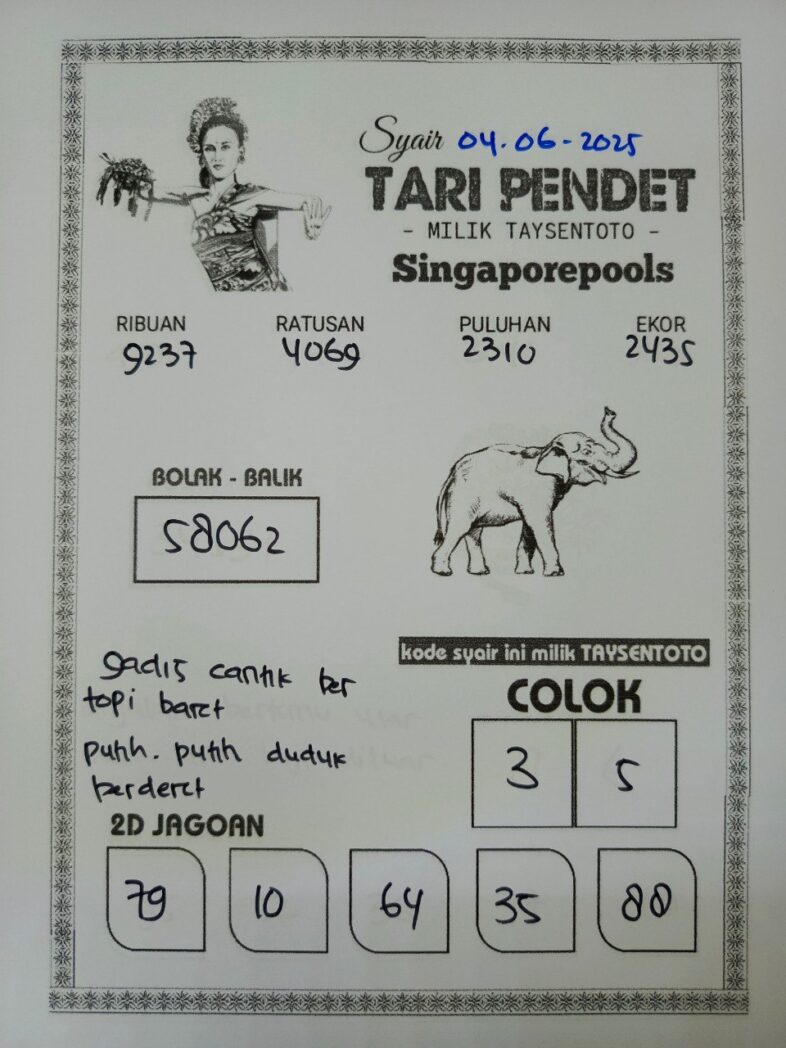 Syair 04.06-2025
TARI PENDET
- MILIK TAYSENTOTO -
Singaporepools
RIBUAN RATUSAN PULUHAN EKOR
9237 4069 2310 2435
BOLAK - BALIK
58062
gadis cantik ber
topi baret
putih. putih duduk
berderet
kode syair ini milik TAYSENTOTO
COLOK
3 5
2D JAGOAN
79 10 64 35 88